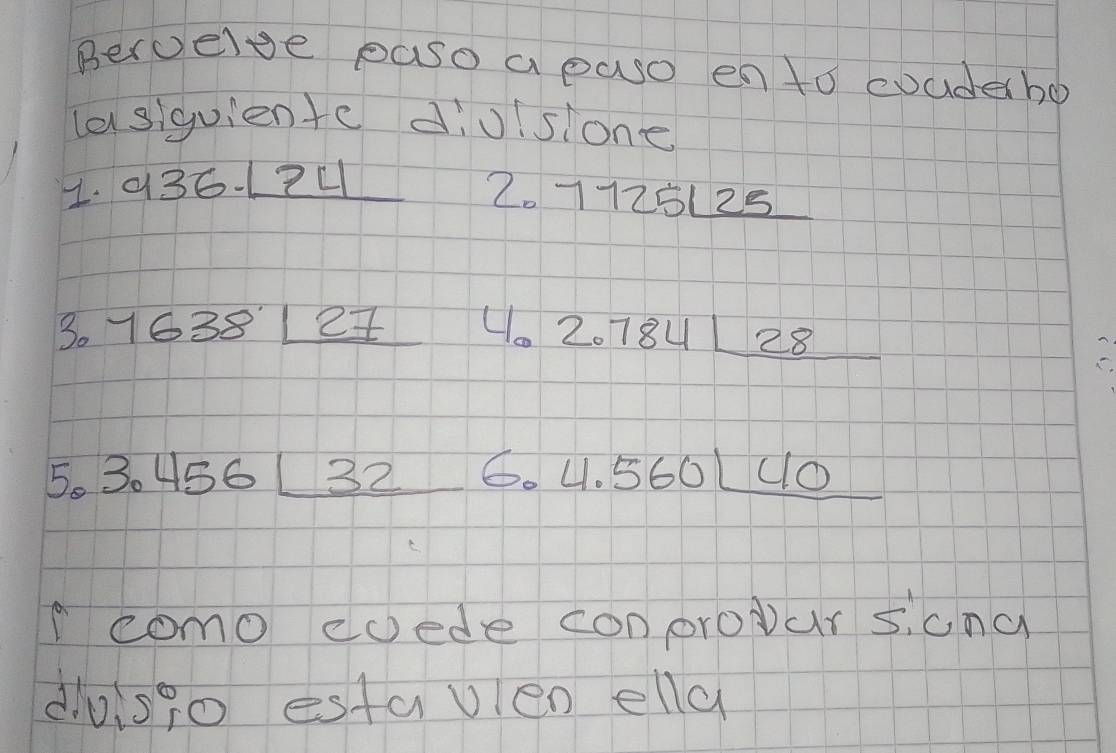 Resuelve paso a paso en to couaderbo
la siguiente divisione
1. 936 24 2. 1125 25
3. 1638 27 4. 2.784 28
5. 3.456 32 6. 4.560 40
como cuede conprovar si una
divisio esta vien ella